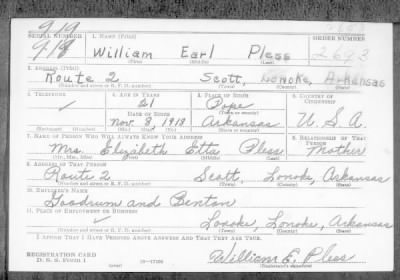 919
SERIAL NUMBER 1. NAME (Print) ORDER NUMBER
919 William Earl Pless 2693
(First) (Middle) (Last)
2. ADDRESS (Print)
Route 2 Scott, Lonoke, Arkansas
(Number and street or R. F. D. number) (Town) (County) (State)
3. TELEPHONE 4. AGE IN YEARS 5. PLACE OF BIRTH 6. COUNTRY OF CITIZENSHIP
21 Pope
DATE OF BIRTH (Town or county)
Nov. 8, 1919 Arkansas U.S.A.
(Exchange) (Number) (Mo.) (Day) (Yr.) (State or country)
7. NAME OF PERSON WHO WILL ALWAYS KNOW YOUR ADDRESS 8. RELATIONSHIP OF THAT PERSON
Mrs Elizabeth Etta Pless Mother
(Mr., Mrs., Miss) (First) (Middle) (Last)
9. ADDRESS OF THAT PERSON
Route 2 Scott, Lonoke, Arkansas
(Number and street or R. F. D. number) (Town) (County) (State)
10. EMPLOYER'S NAME
Goodrum and Benton
11. PLACE OF EMPLOYMENT OR BUSINESS
Lonoke, Lonoke, Arkansas
(Number and street or R. F. D. number) (Town) (County) (State)
I AFFIRM THAT I HAVE VERIFIED ABOVE ANSWERS AND THAT THEY ARE TRUE.
REGISTRATION CARD
D. S. S. Form 1 16-17105 William E. Pless
(Registrant's signature)